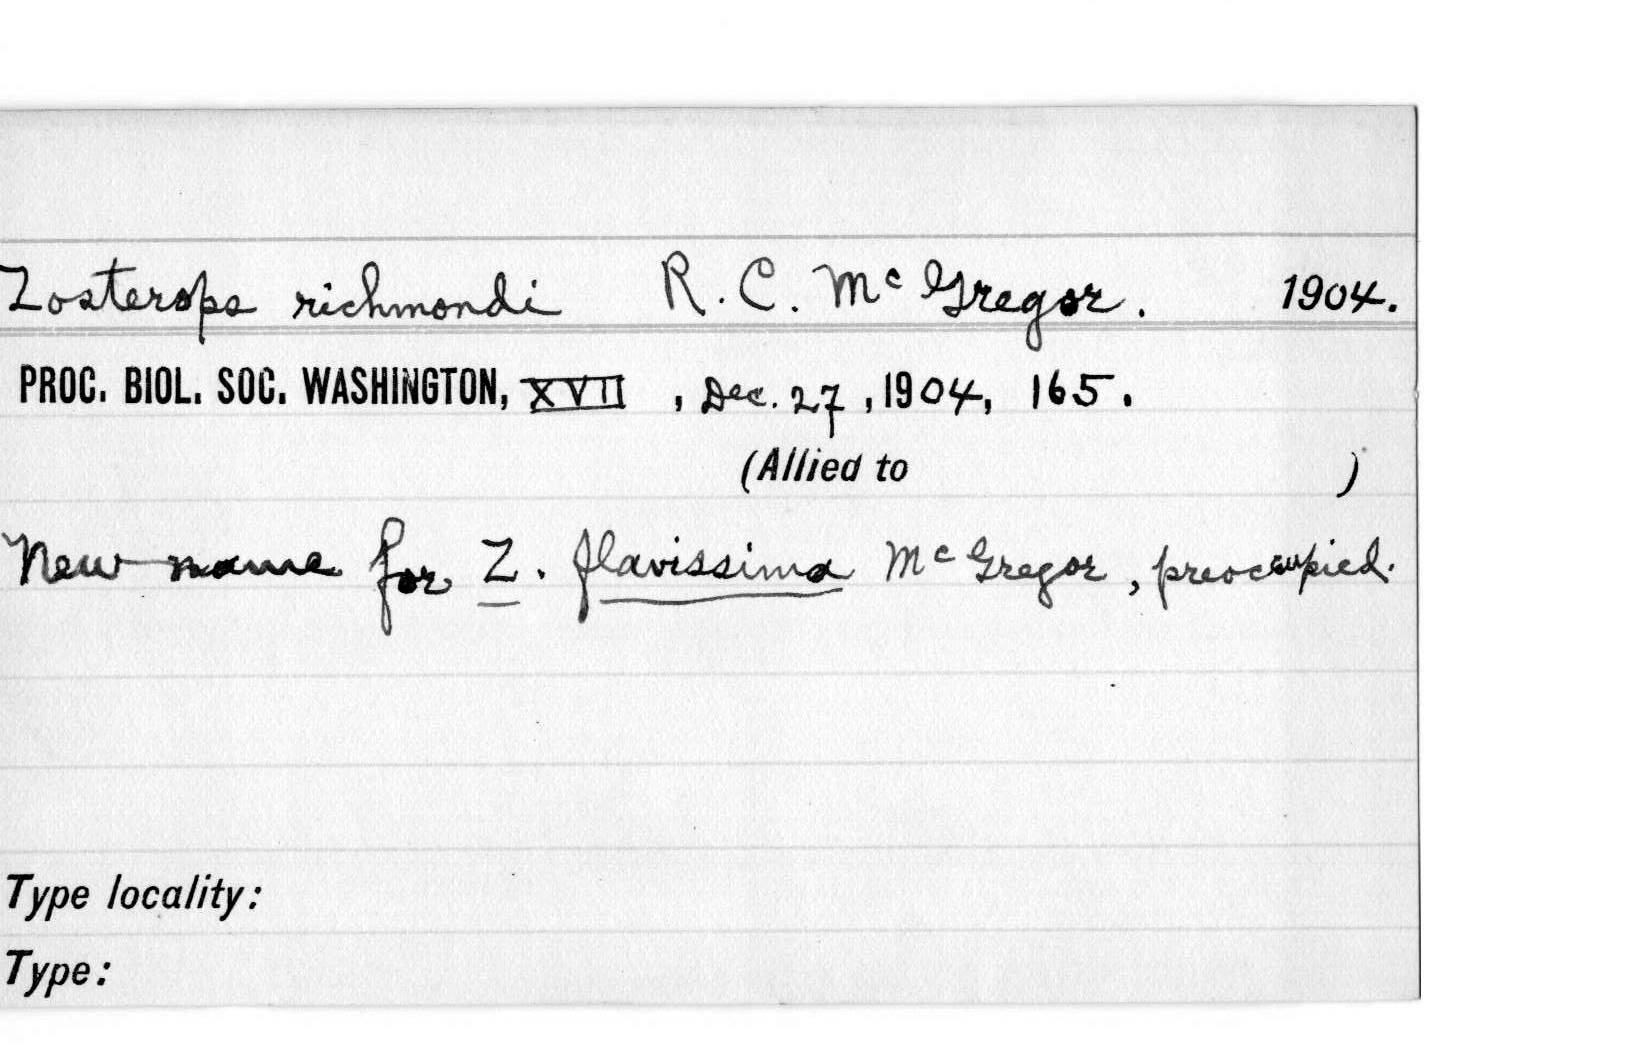 Zosterops richmondi R. C. McGregor. 1904.
PROC. BIOL. SOC. WASHINGTON, XVII, Dec. 27, 1904, 165.
(Allied to )
New name for Z. flavissima McGregor, preoccupied.
Type locality:
Type: